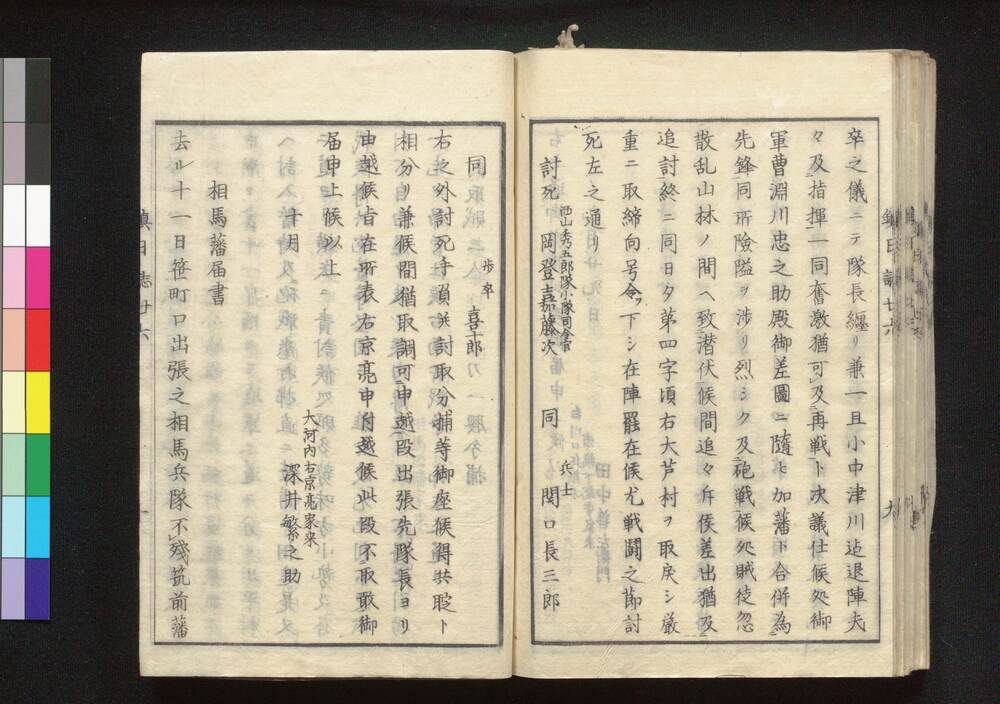 卒之儀ニテ隊長纏リ兼一且小中津川迠退陣夫
々及指揮一同奮激猶可及再戦ト决議仕候処御
軍曹淵川忠之助殿御差圖ニ隨ヒ加藩ト合併為
先鋒同所險隘ヲ涉リ烈シク及砲戦候処賊徒忽
散乱山林ノ間ヘ致潜伏候間追々斥候差出猶及
追討終ニ同日夕第四字頃右大芦村ヲ取戾シ嚴
重ニ取締向号令ヲ下シ在陣罷在候尤戦鬪之節討
死左之通リ
西山秀五郎隊小隊司令官
討死 岡登嘉藤次
兵士
同 関口長三郎
歩卒
同 喜十郎
右之外討死手負幷討取分捕等御座候得共聢ト
相分リ兼候間猶取調可申越段出張先隊長ヨリ
申越候旨在所表右京亮申付越候此段不取敢御
届申上候以上
十月
大河内右京亮家来
深井繁之助
相馬藩届書
去ル十一日笹町口出張之相馬兵隊不殘筑前藩
鎮日志廿六